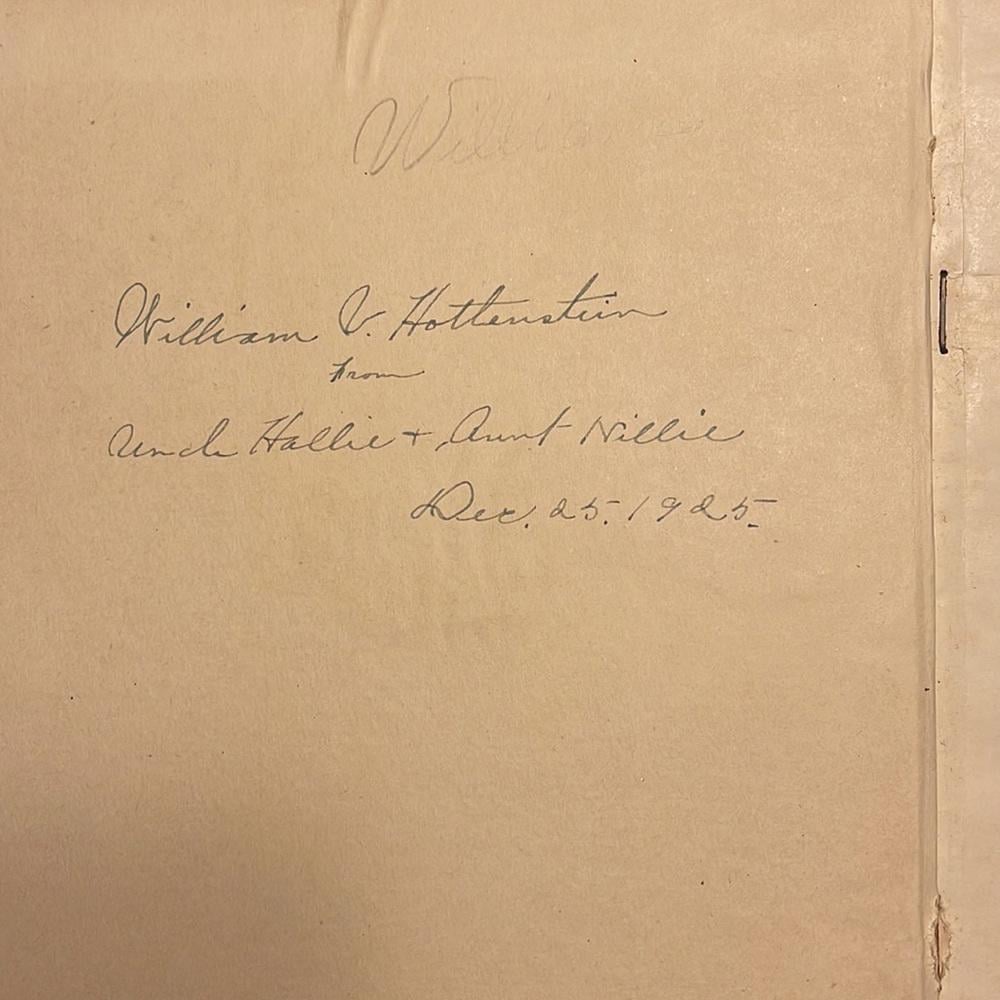 William
William V. Hottenstein
From
Uncle Hallie + Aunt Nillie
Dec. 25. 1925.